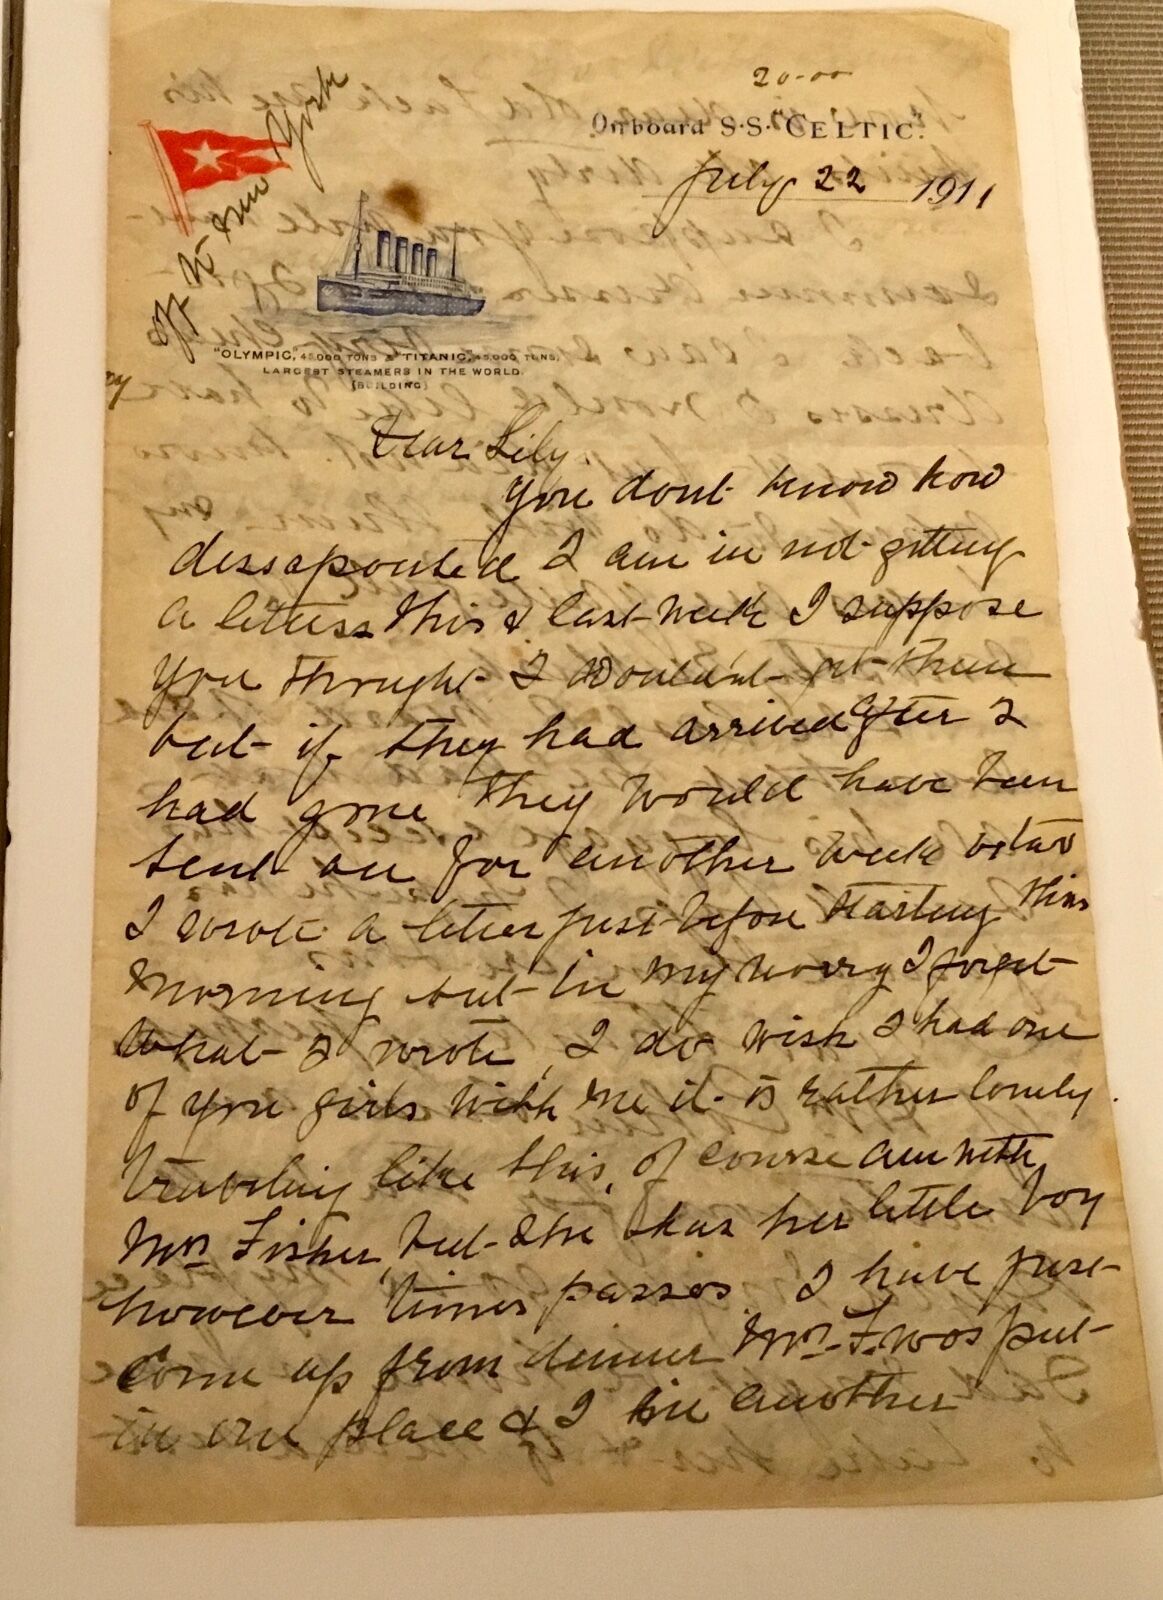 20-00
Onboard S.S. "CELTIC".
July 22 1911
off New York
"OLYMPIC," 45,000 TONS & "TITANIC," 45,000 TONS,
LARGEST STEAMERS IN THE WORLD.
(BUILDING)
Dear Lily
You dont know how
dissapointed I am in not getting
a letters this & last week I suppose
you thought I wouldn't get them
but if they had arrived after I
had gone they would have been
sent on for another week or two
I wrote a letter just before starting this
morning but in my worry I forget
what I wrote, I do wish I had one
of you girls with me it is rather lonely
traveling like this, of course am with
Mrs Fisher, but she has her little boy
however times passes. I have just
come up from dinner Mrs F. was put
in one place & I in another